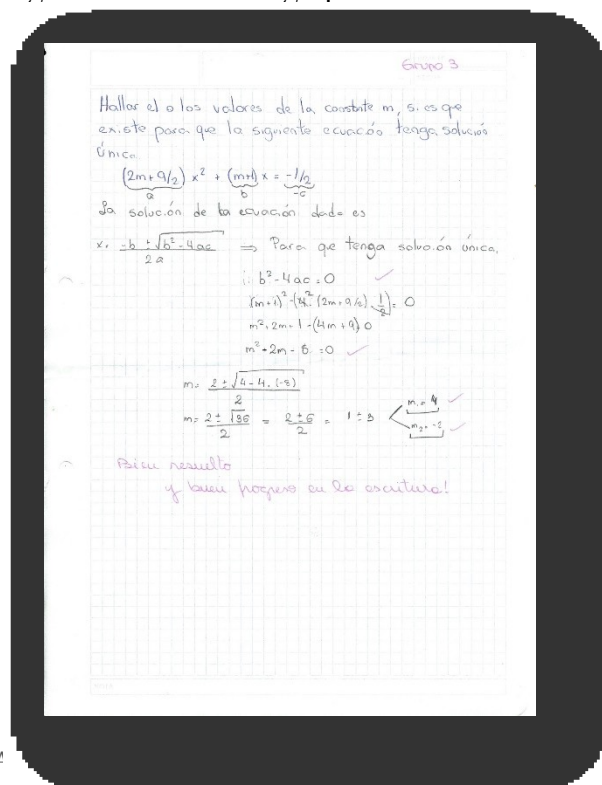 Grupo 3
Hallar el o los valores de la constnte m, si es qe
existe para que la siguiente ecuacóo tenga solución
única.
(2m+9/2) x² + (m+1) x = -1/2
a b -c
La solución de la ecuación dada es
x = -b ± √b² - 4ac / 2a ⇒ Para qe tenga solución única,
b² - 4ac = 0 ✓
(m+1)² - (4 (2m+9/2) 1/2) = 0
m² + 2m + 1 - (4m + 9) 0
m² + 2m - 8 = 0 ✓
m = 2 ± √4 - 4 . (-8) / 2
m = 2 ± √36 / 2 = 2 ± 6 / 2 = 1 ± 3 m₁ = 4 ✓
m₂ = -2 ✓
Bien resuelto
y buen progreso en la escritura!